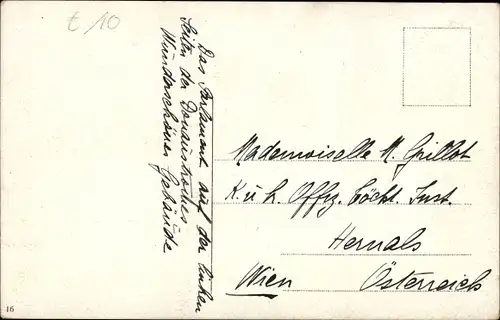 € 10
Das Parlament auf der linken
Seiten der Donaustrohes
Wunderschönes Gebäude
Mademoiselle M. Grillot
K. u. k. Offz. Töcht. Inst.
Hernals
Wien Österreich
16